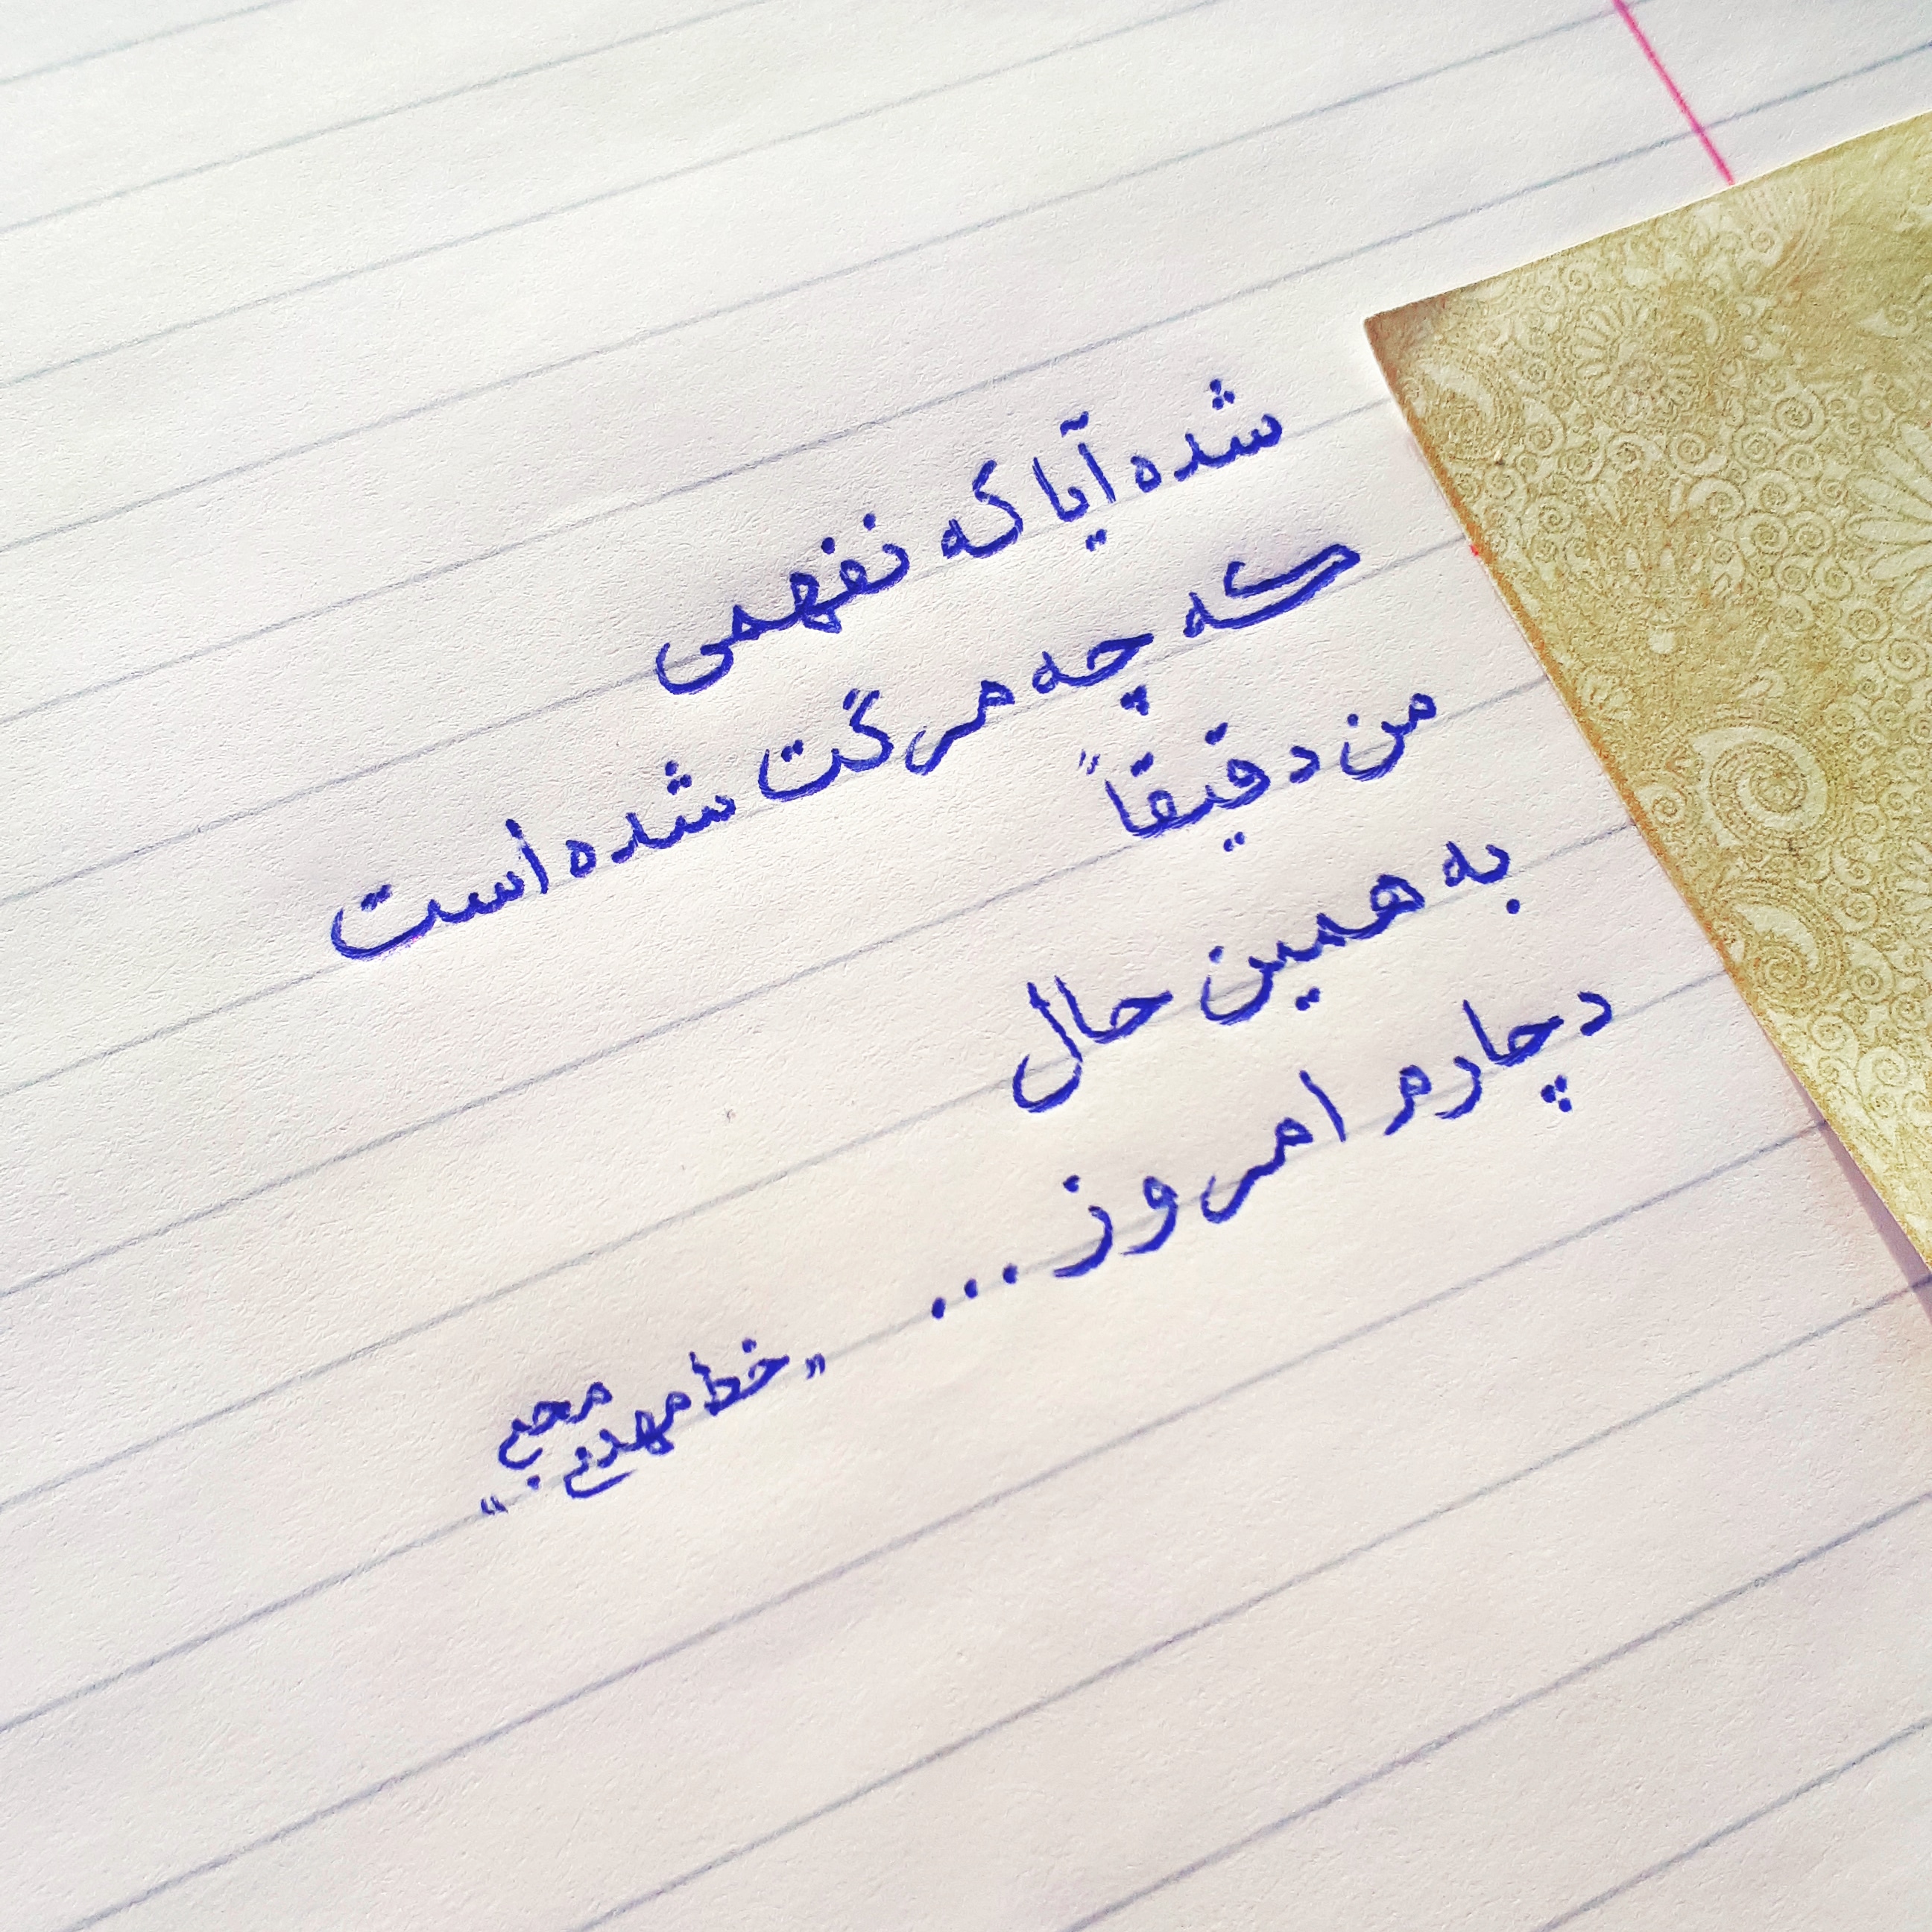 شده آیا که نفهمی
که چه مرگت شده است
من دقیقاً
به همین حال
دچارم امروز...
"خط مهدی محبی"